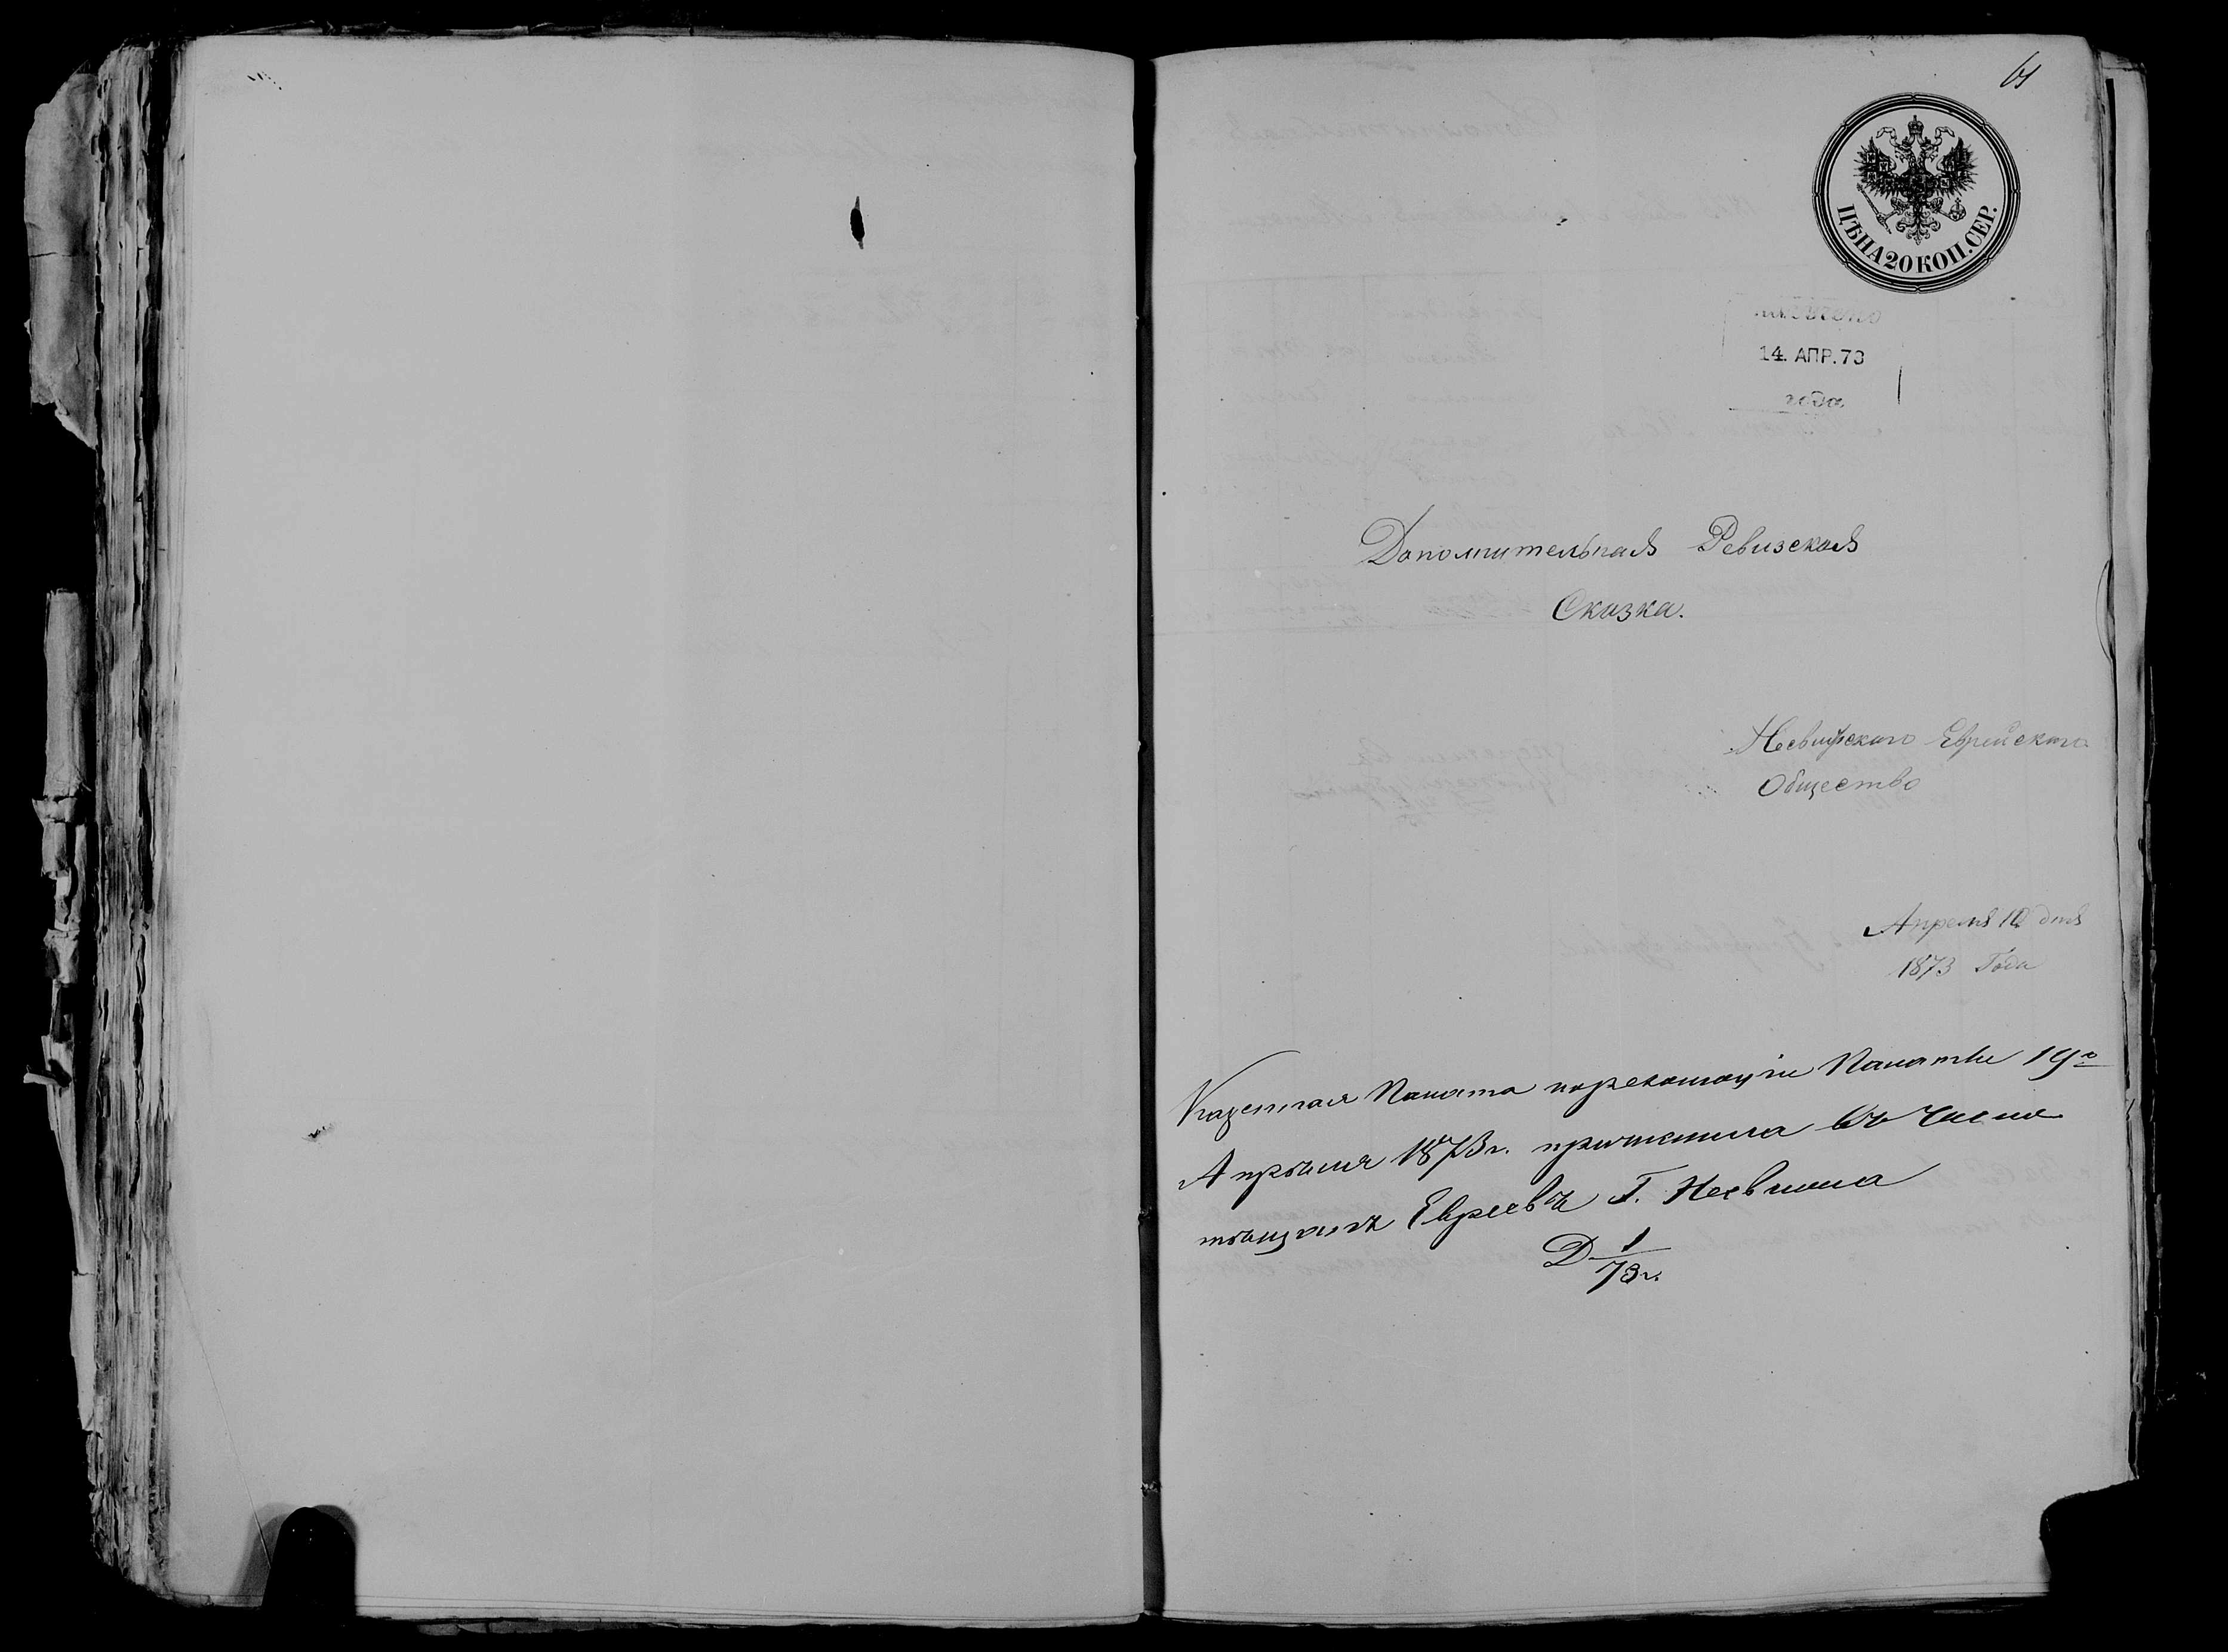 61
ЦѢНА 20 КОП. СЕР.
14. АПР. 73
года
Дополнительная Ревизская
Сказка.
Несвижскаго Еврейскаго
Общество
Апреля 10 дня
1873 Года
Казенная Палата по резолюціи Палаты 19го
Апрѣля 1873 г. причислила въ число
мѣщанъ Евреевъ Г. Несвижа
Д 1/73 г.